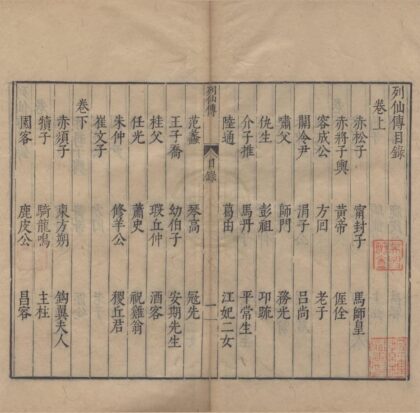 列仙傳目錄
卷上
赤松子 甯封子 馬師皇
赤將子輿 黃帝 偓佺
容成公 方回 老子
關令尹 涓子 呂尚
嘯父 師門 務光
仇生 彭祖 卭疏
介子推 馬丹 平常生
陸通 葛由 江妃二女
列仙傳
目錄
一
范蠡 琴高 冦先
王子喬 幼伯子 安期先生
桂父 瑕丘仲 酒客
任光 蕭史 祝雞翁
朱仲 修羊公 稷丘君
崔文子
卷下
赤須子 東方朔 鈎翼夫人
犢子 騎龍鳴 主柱
園客 鹿皮公 昌容